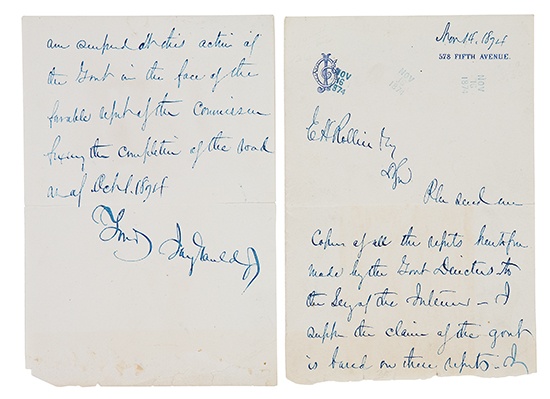 Nov 14. 1874
578 FIFTH AVENUE.
NOV
16
1874
NOV
1874
NOV
1874
E H Rollins Esq
Dr Sir
Pls send me
Copies of all the repts heretofore
made by the Govt Directors to
the Secy of the Interior - I
suppose the claim of the govt
is based on these repts - I
am surprised at this action of
the Govt in the face of the
favorable report of the Commission
fixing the completion of the road
as of Oct 1. 1874
Yours
Jay Gould